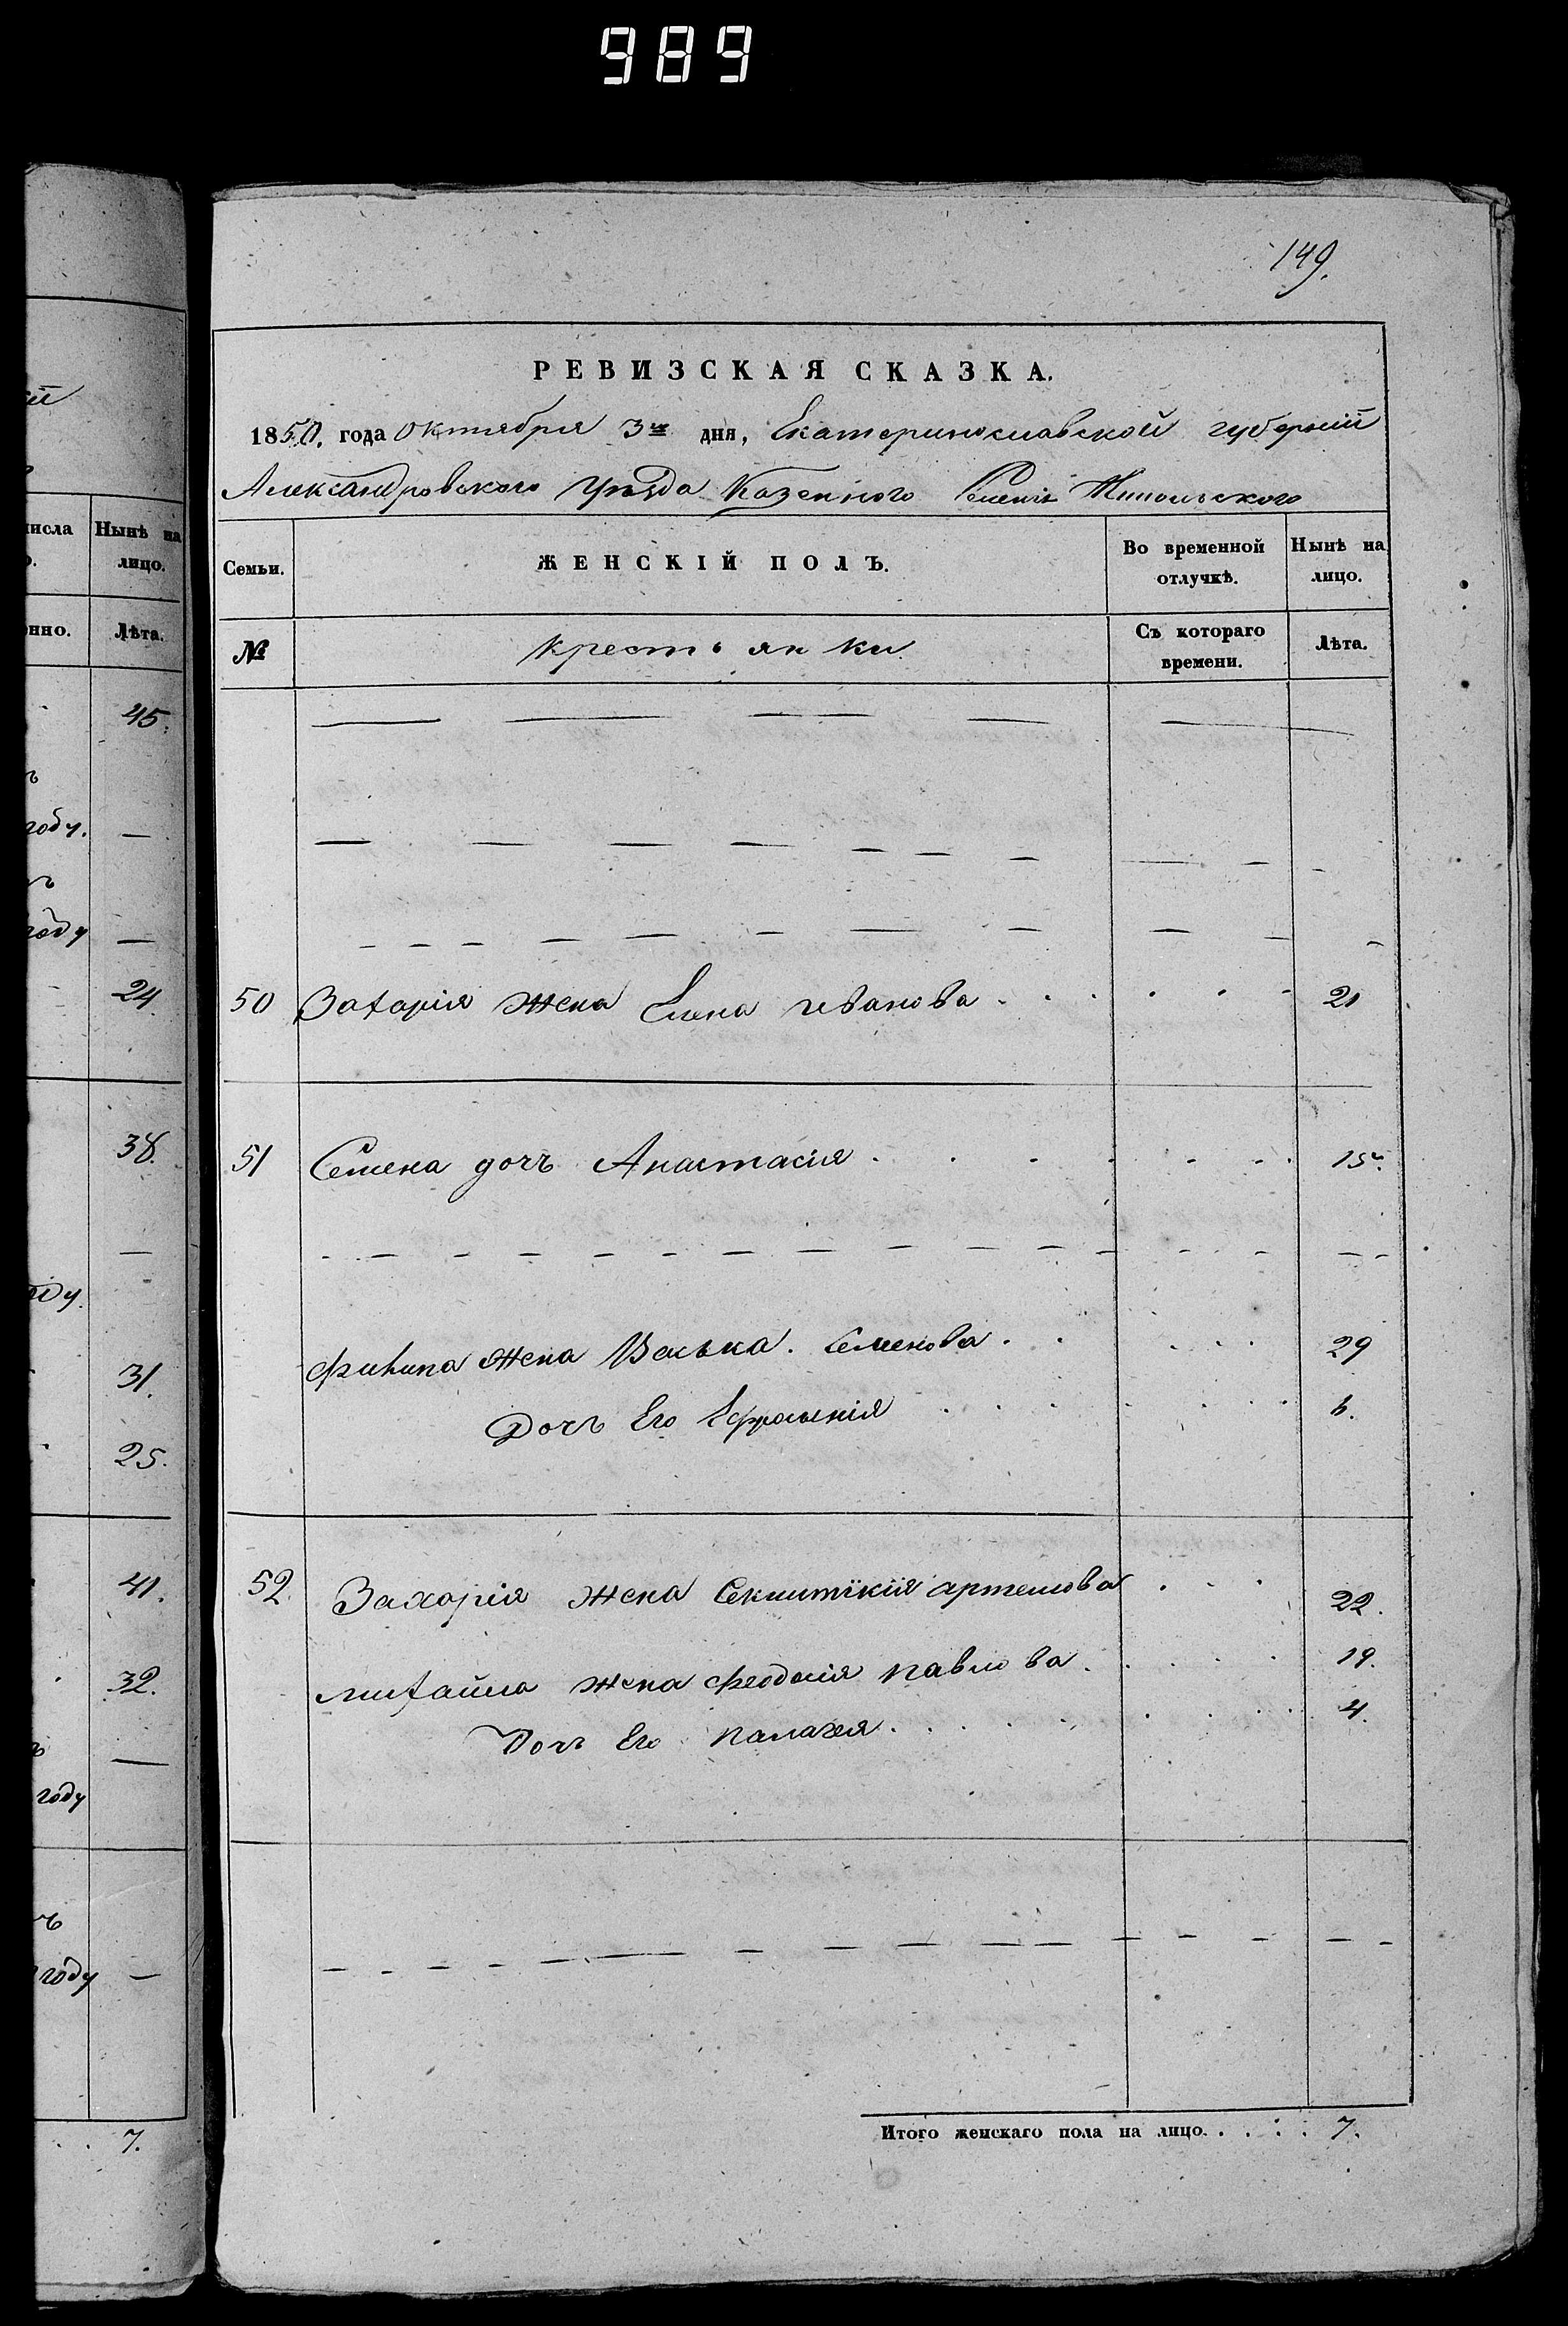 989
149.
РЕВИЗСКАЯ СКАЗКА.
1850. года Октября 3го дня, Екатеринославской губерній
Александровского Уѣзда Казенного Селенія
Семьи. ЖЕНСКІЙ ПОЛЪ. Во временной отлучкѣ. Нынѣ на лицо.
№ крестьянки Съ котораго времени. Лѣта.
50 Захарія жена Елена Иванова 21
51 Семена дочъ Анастасія 15
Филипа жена Васька. Семенова 29
Дочъ Его Ефросинія 6.
52 Захарія жена артемова 22.
михайла жена феодосія павлова 19.
Дочъ Его палагея 4.
Итого женскаго пола на лицо. 7.
исла Нынѣ на лицо.
нно. Лѣта.
45.
году. —
году —
24.
38.
—
оду.
31.
25.
41.
32.
—
году
году —
7.